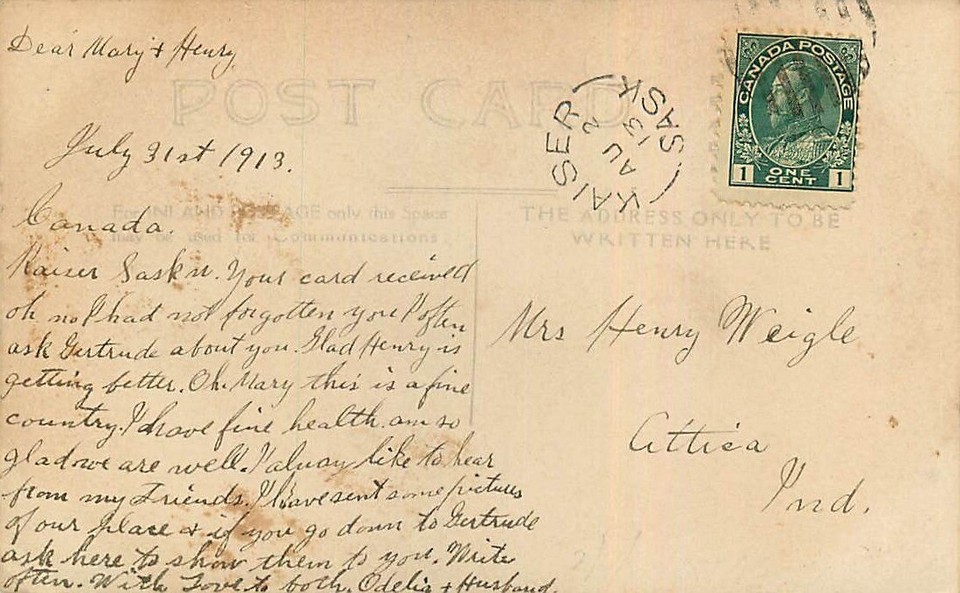 Dear Mary + Henry
POST CARD
July 31st 1913.
Canada.
For INLAND POSTAGE only this Space
may be used for Communications
Kaiser Sask n. Your card received
oh no I had not forgotten you I often
ask Gertrude about you. Glad Henry is
getting better. Oh. Mary this is a fine
country. I have fine health. am so
glad we are well. I alway like to hear
from my Friends. I have sent some pictures
of our place & if you go down to Gertrude
ask here to show them to you. Write
often. With Love to both. Odelia + Husband.
KAISER
SASK
AU 2
13
CANADA POSTAGE
1 ONE CENT 1
THE ADDRESS ONLY TO BE
WRITTEN HERE
Mrs Henry Weigle
Attica
Ind.